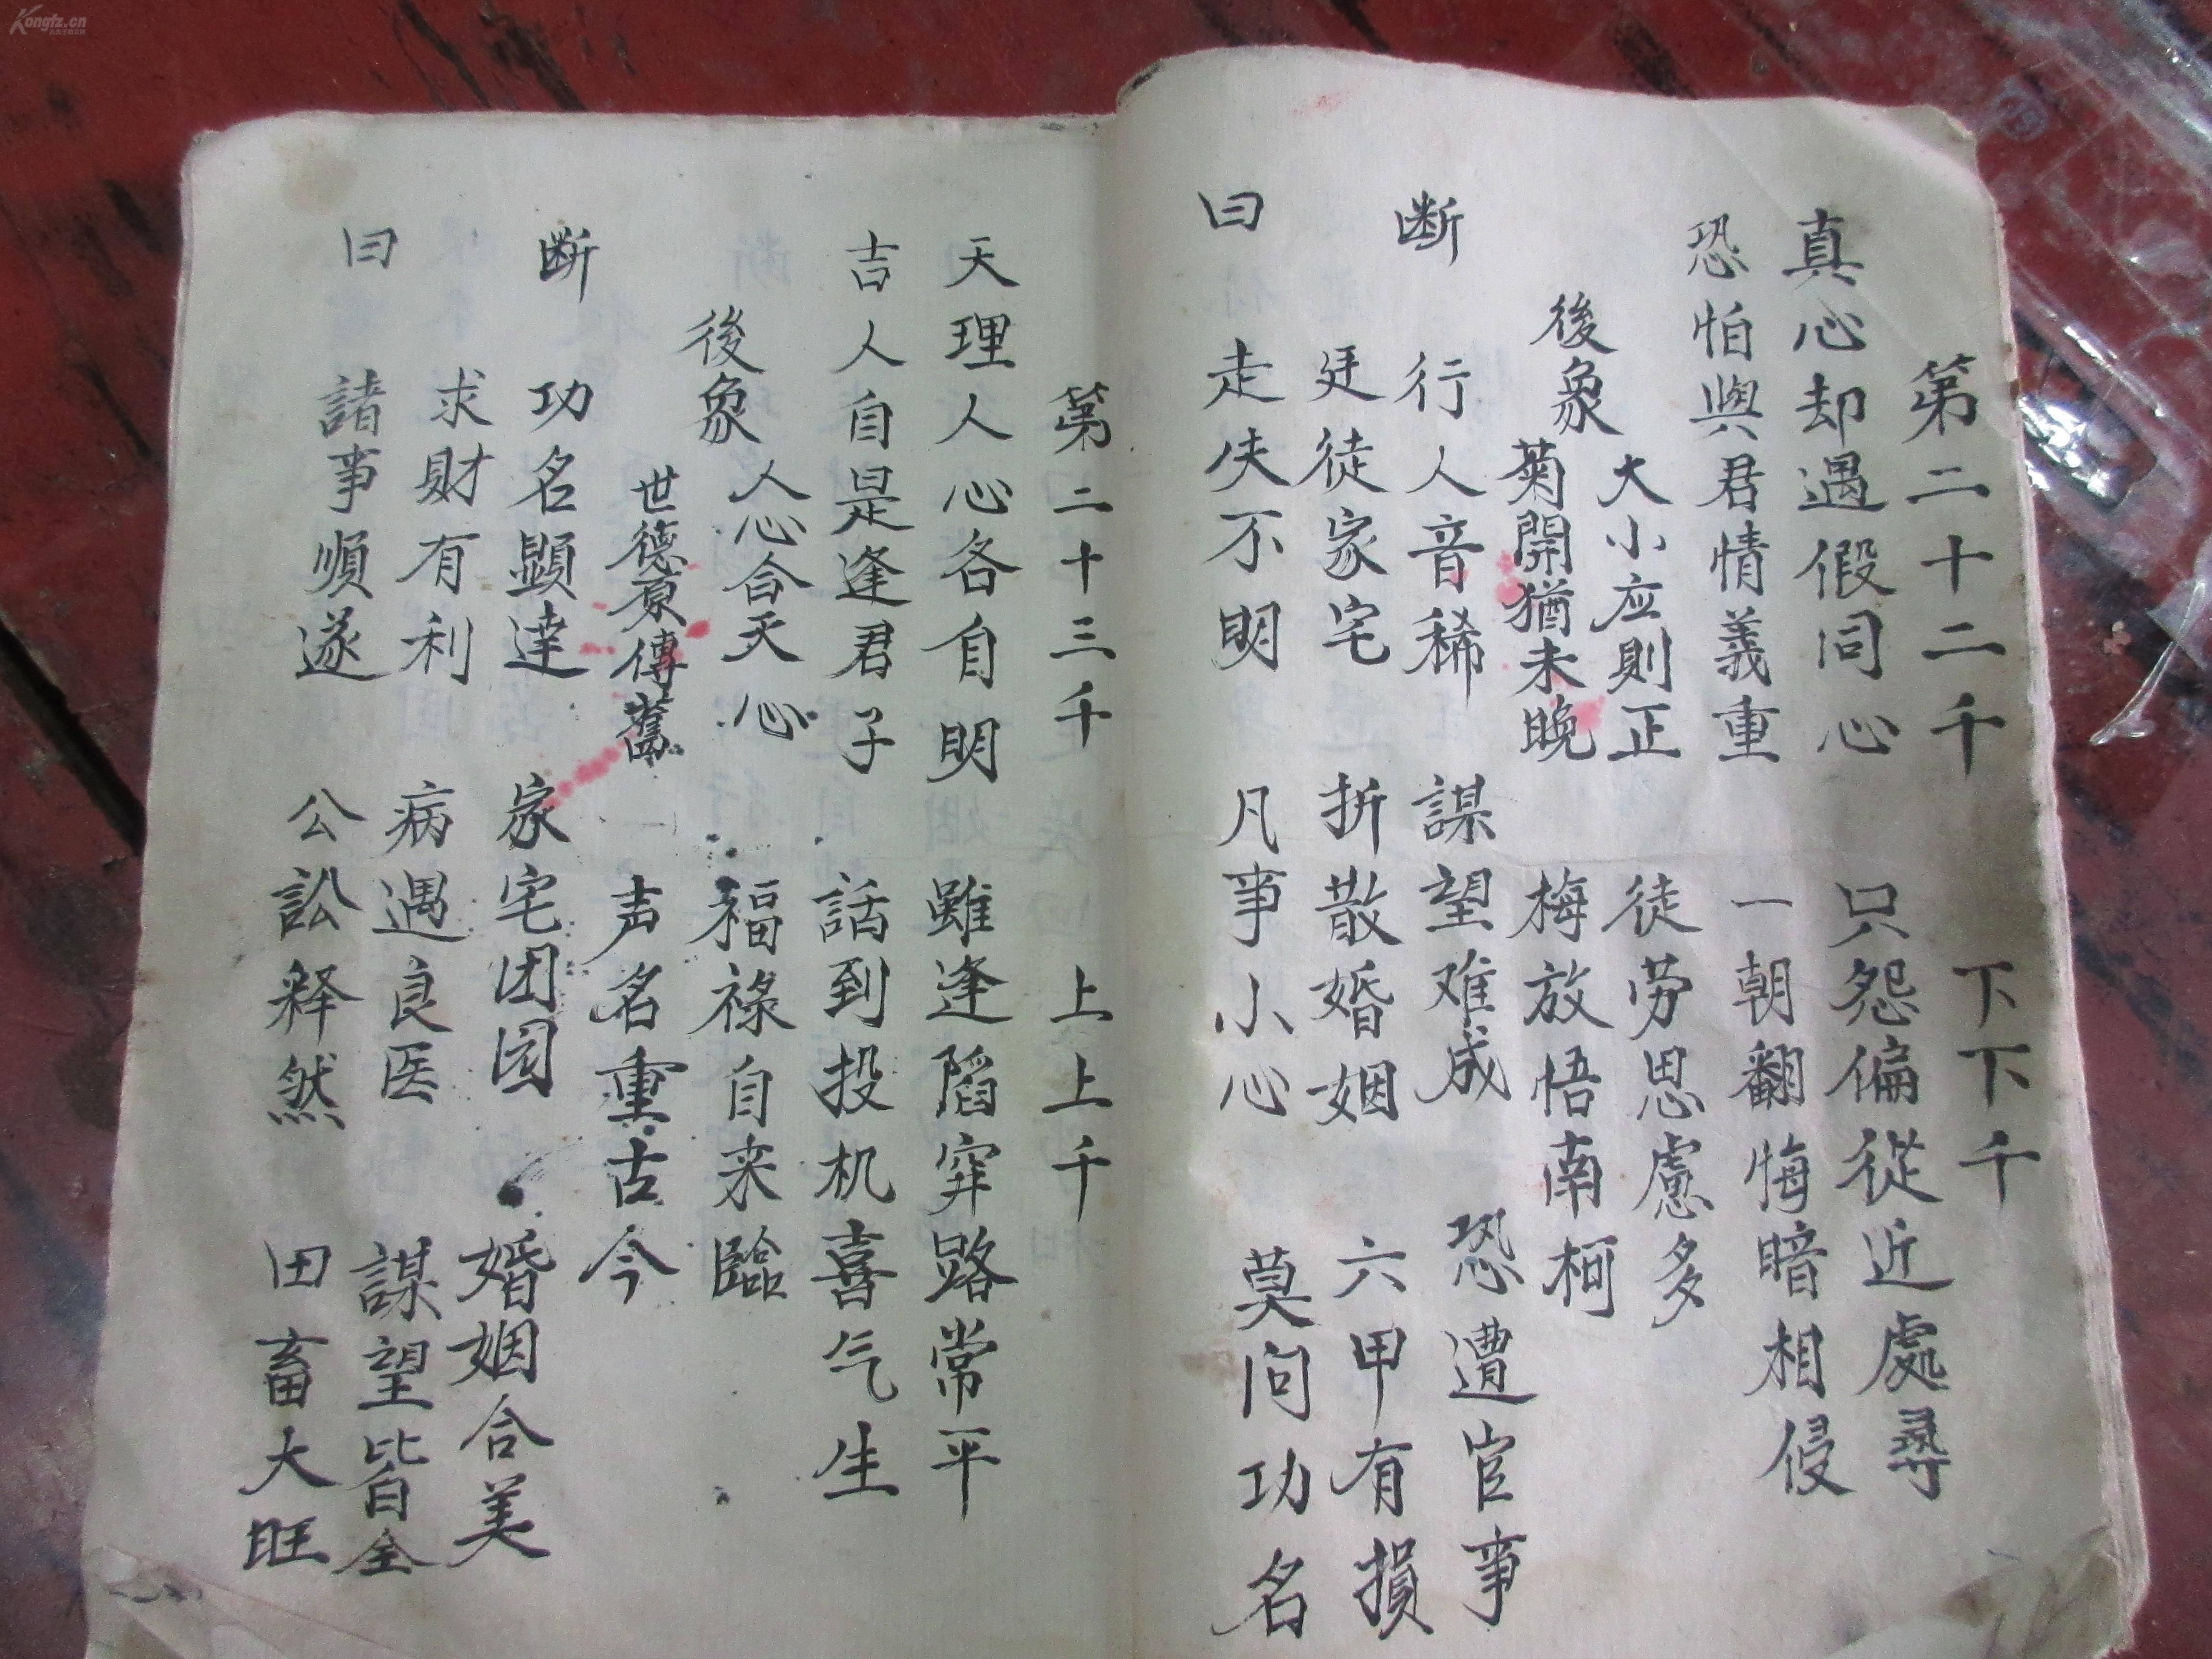 第二十二千 下下千
真心却遇假同心 只怨偏從近處尋
恐怕與君情義重 一朝翻悔暗相侵
後象
大小应則正 徒劳思慮多
菊開猶未晚 梅放悟南柯
断
行人音稀 謀望难成 恐遭官事
迁徒家宅 折散婚姻 六甲有損
曰
走失不明 凡事小心 莫问功名
第二十三千 上上千
天理人心各自明 雖逢陷穽路常平
吉人自是逢君子 話到投机喜气生
後象
人心合天心 福祿自来臨
世德原傳舊 声名重古今
断
功名顕達 家宅团园 婚姻合美
求財有利 病遇良医 謀望皆全
曰
諸事順遂 公訟释然 田畜大旺
Kongfz.cn